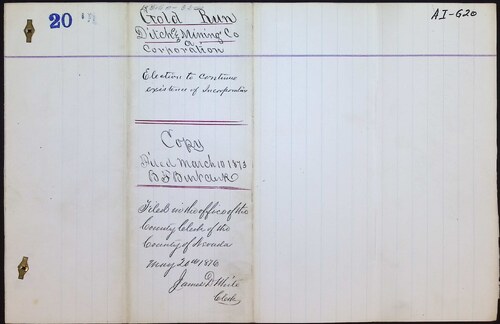 20
Gold Run
Ditch & Mining Co
a
Corporation
Election to continue
existence of Incorporation
Copy
Filed March 10 1873
Filed in the office of the
County Clerk of the
County of Nevada
May 20th 1876
James D White
Clerk
A I-620